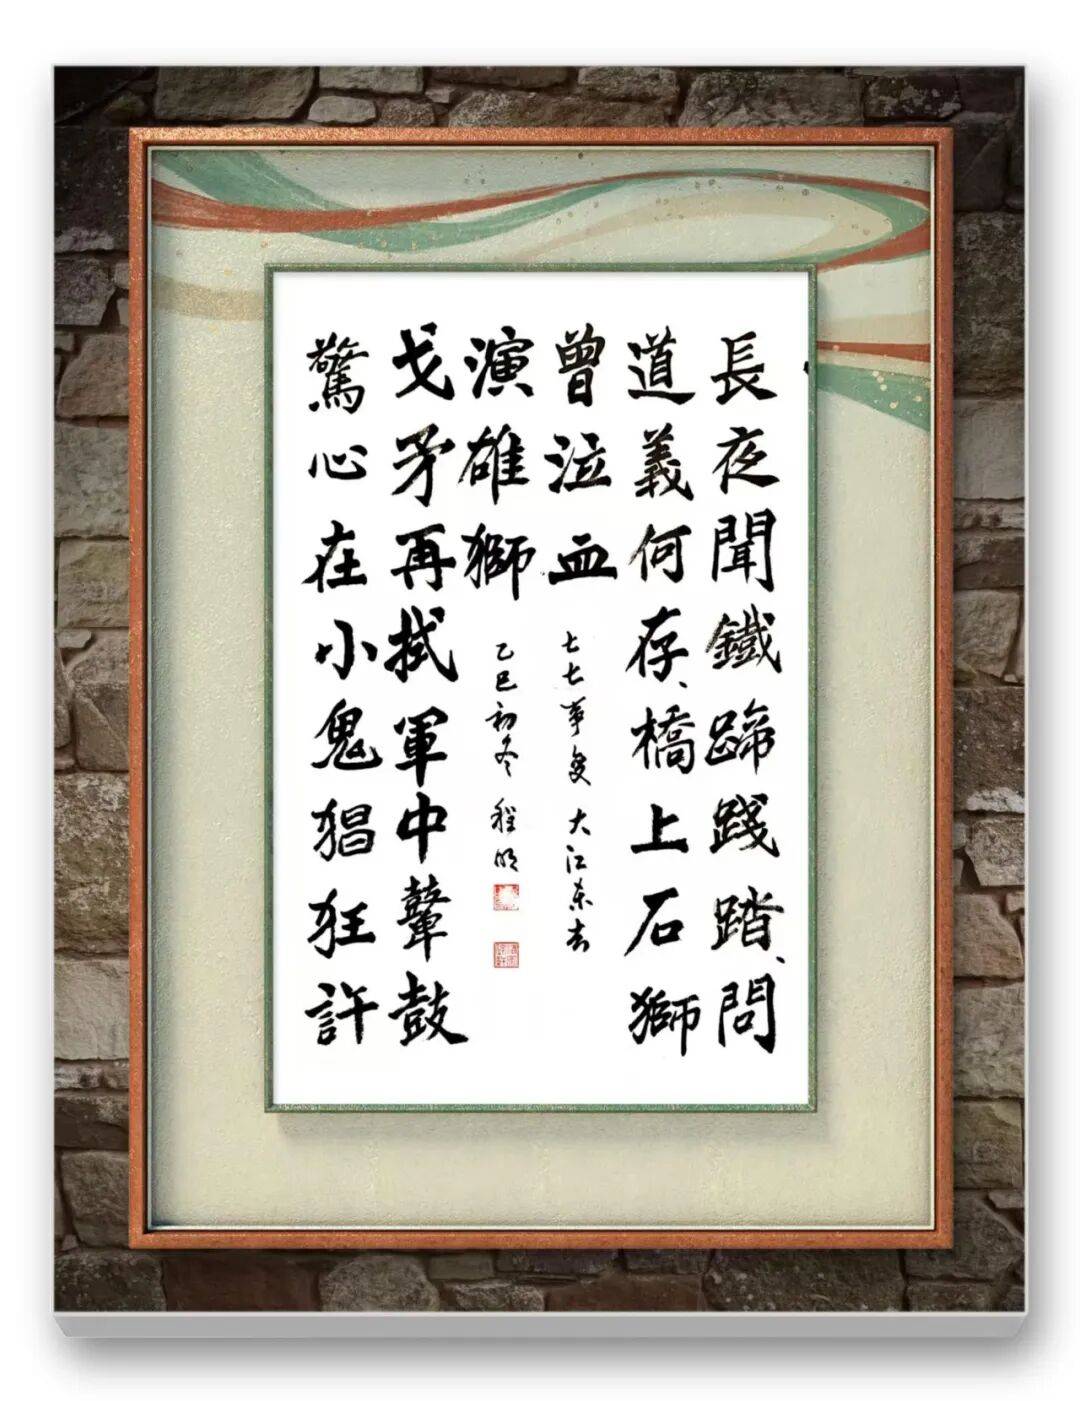 長夜聞鐵蹄踐踏、問
道義何存、橋上石獅
曾泣血
七七事变 大江东去
驚心在小鬼猖狂許
戈矛再拭軍中鼙鼓
演雄獅
乙巳初冬 程明